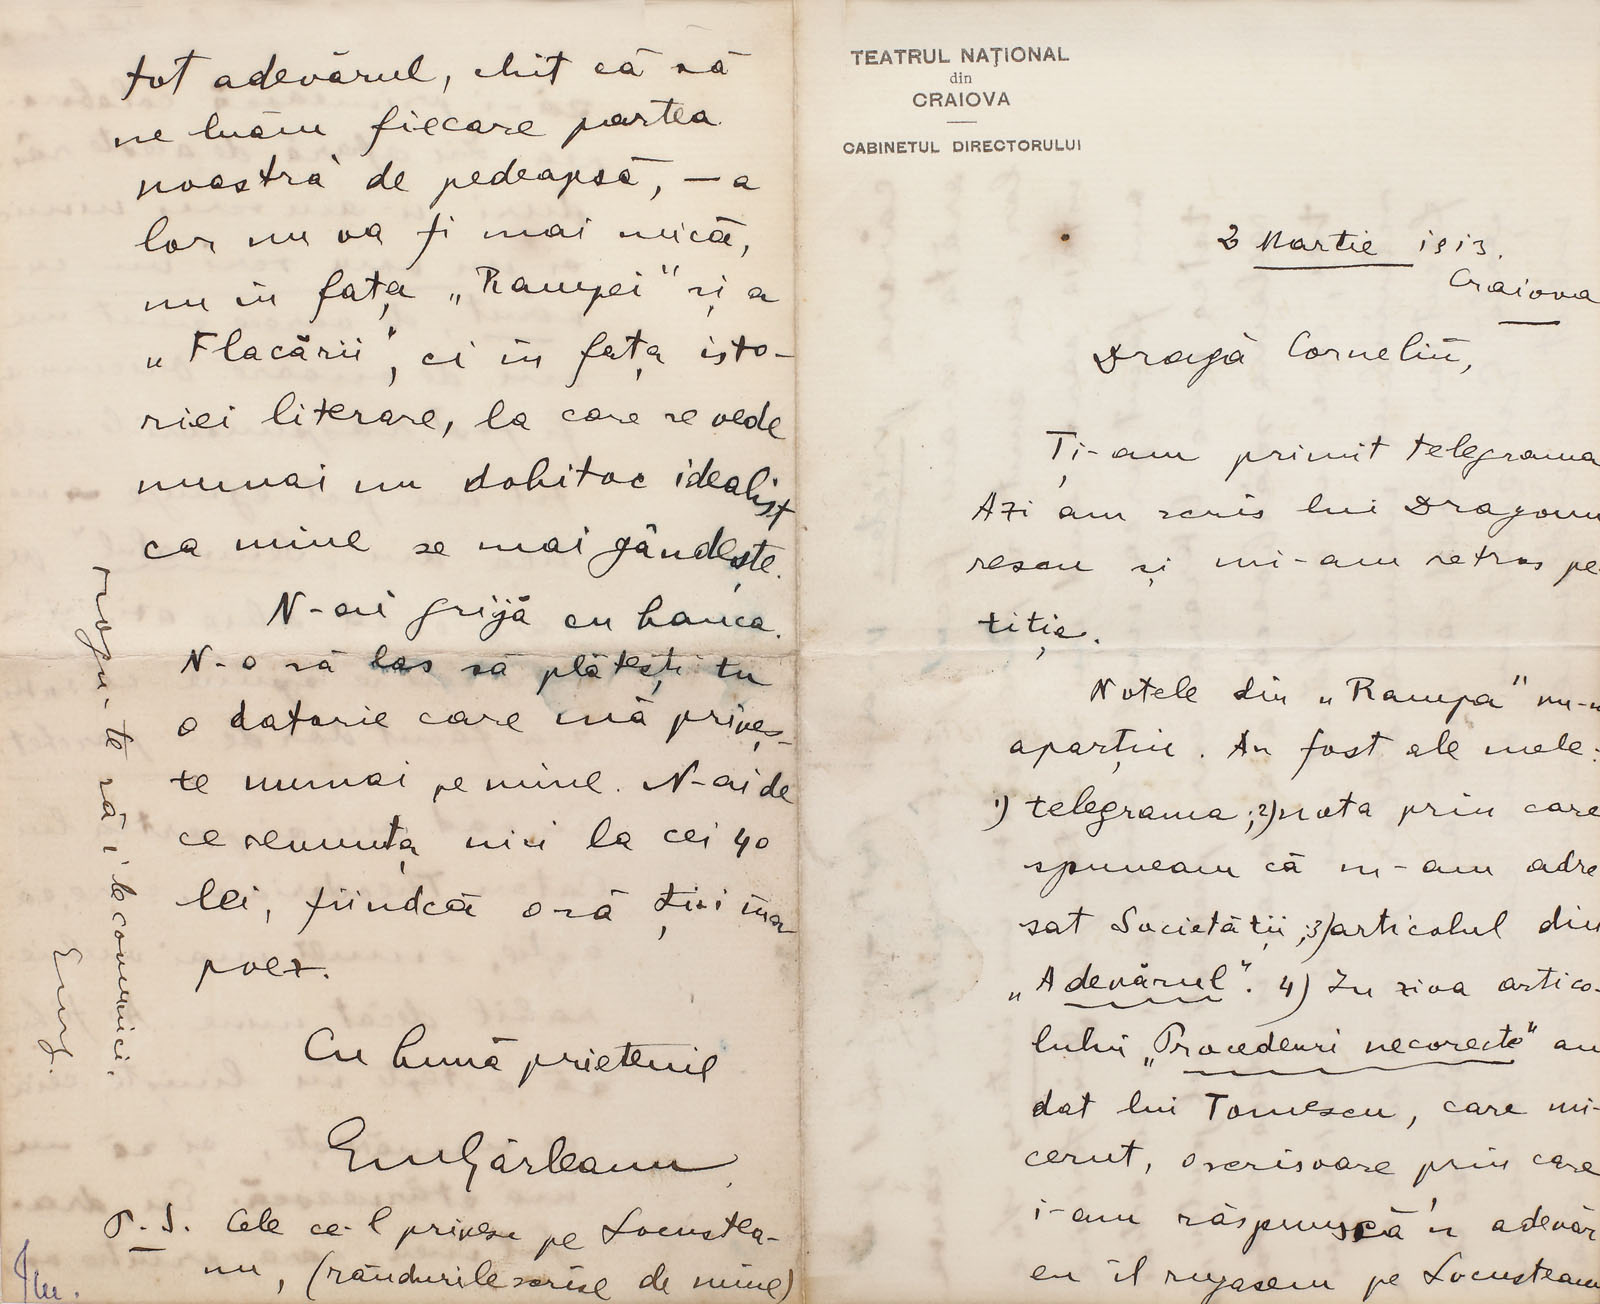 TEATRUL NAŢIONAL
din
CRAIOVA
CABINETUL DIRECTORULUI
2 Martie 1913.
Craiova
Dragă Corneliŭ,
Ţi-am primit telegrama
Azi am scris lui Dragomi
rescu şi mi-am retras pe-
tiţia.
Notele din „Rampa" nu-
aparţin. Au fost ale mele:
1) telegrama; 2) nota prin care
spuneam că m-am adre
sat Societăţii; 3) articolul din
„Adevărul". 4) In ziua artico-
lului „Procedeuri necorecte" am
dat lui Tomescu, care mi-
cerut, o scrisoare prin care
i-am răspuns că 'n adevăr
eu îl rugasem pe Locusteanu
tot adevărul, chit că să
ne luăm fiecare partea
noastră de pedeapsă, – a
lor nu va fi mai mică,
nu în faţa „Rampei" şi a
„Flacării", ci în faţa isto-
riei literare, la care se vede
numai un dobitoc idealist
ca mine se mai gândeşte.
N-ai grijă cu banca.
N-o să las să plăteşti tu
o datorie care mă priveş-
te numai pe mine. N-ai de
ce renunţa nici la cei 40
lei, fiindcă o să ţii în
Cu bună prietenie
Em Gârleanu
P. S. Cele ce-l privesc pe Locustea-
nu, (rândurile scrise de mine)
rogu-te să i le comunici.
Emg.